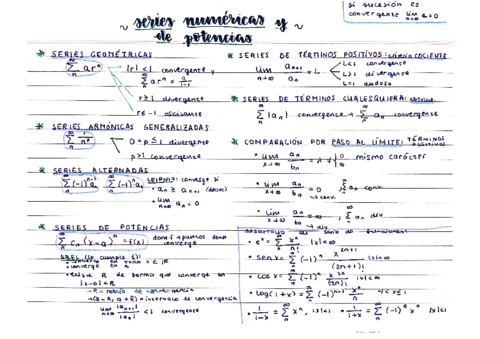 si sucesión es
convergente lim aₙ=0
n→∞
~ series numéricas y
de potencias ~
* SERIES GEOMÉTRICAS
∑ arⁿ
|r|<1 convergente y
∑ arⁿ = a/1-r
r≥1 divergente
r≤-1 oscilante
* SERIES ARMÓNICAS GENERALIZADAS
∑ 1/nᵖ
0<p≤1 divergente
p>1 convergente
* SERIES ALTERNADAS
∑(-1)ⁿ⁻¹aₙ ∑(-1)ⁿaₙ
LEIPNIZ: converge si
• aₙ ≥ aₙ₊₁
• lim aₙ = 0
* SERIES DE POTENCIAS
∑ cₙ(x-a)ⁿ = f(x)
converge
ABEL (se cumple si)
• converge en
• existe R de forma que converge en
→ R = radio de convergencia
→ (a-R, a+R) = intervalo de convergencia
lim |aₙ₊₁|/|aₙ| <1 convergente
* SERIES DE TÉRMINOS POSITIVOS: criterio COCIENTE
lim aₙ₊₁/aₙ = L
n→∞
L<1 convergente
L>1 divergente
L=1 dudoso
* SERIES DE TÉRMINOS CUALESQUIERA:
∑|aₙ| convergente → ∑ aₙ conv.
* COMPARACIÓN POR PASO AL LÍMITE: TÉRMINOS POSITIVOS
• lim aₙ/bₙ = λ ≠ 0 mismo carácter
• lim aₙ/bₙ = 0 ∑aₙ conv.
↳ conv.
• lim aₙ/bₙ = ∞ ∑aₙ div
↳ div
desarrollo de serie de funciones
• eˣ = ∑ xⁿ/n! |x|<∞
• sen x = ∑(-1)ⁿ x²ⁿ⁺¹/(2n+1)! |x|<∞
• cos x = ∑(-1)ⁿ x²ⁿ/(2n)! |x|<∞
• log(1+x) = ∑(-1)ⁿ⁻¹ xⁿ/n -1<x≤1
• 1/1-x = ∑ xⁿ, |x|<1 • 1/1+x = ∑(-1)ⁿ xⁿ |x|<1